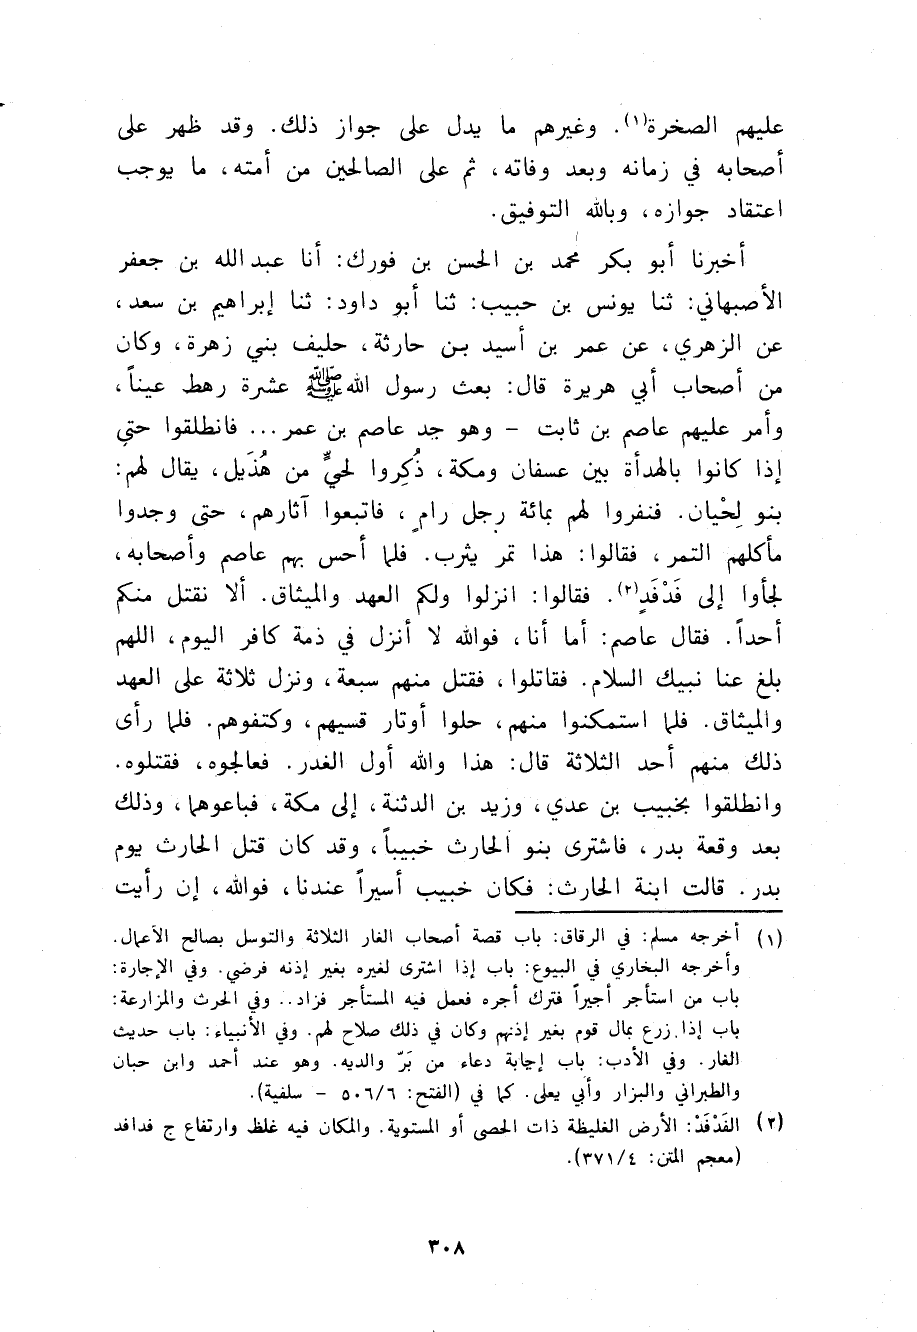 عليهم الصخرة(١). وغيرهم ما يدل على جواز ذلك. وقد ظهر على
أصحابه في زمانه وبعد وفاته، ثم على الصالحين من أمته، ما يوجب
اعتقاد جوازه، وبالله التوفيق.
أخبرنا أبو بكر محمد بن الحسن بن فورك: أنا عبدالله بن جعفر
الأصبهاني: ثنا يونس بن حبيب: ثنا أبو داود: ثنا إبراهيم بن سعد،
عن الزهري، عن عمر بن أسيد بن حارثة، حليف بني زهرة، وكان
من أصحاب أبي هريرة قال: بعث رسول الله ﷺ عشرة رهط عيناً،
وأمر عليهم عاصم بن ثابت - وهو جد عاصم بن عمر... فانطلقوا حتى
إذا كانوا بالهدأة بين عسفان ومكة، ذُكِروا لحيٍّ من هُذَيل، يقال لهم:
بنو لِحْيان. فنفروا لهم بمائة رجل رامٍ، فاتبعوا آثارهم، حتى وجدوا
مأكلهم التمر، فقالوا: هذا تمر يثرب. فلما أحس بهم عاصم وأصحابه،
لجأوا إلى فَدْفَدٍ(٢). فقالوا: انزلوا ولكم العهد والميثاق. ألا نقتل منكم
أحداً. فقال عاصم: أما أنا، فوالله لا أنزل في ذمة كافر اليوم، اللهم
بلغ عنا نبيك السلام. فقاتلوا، فقتل منهم سبعة، ونزل ثلاثة على العهد
والميثاق. فلما استمكنوا منهم، حلوا أوتار قسيهم، وكتفوهم. فلما رأى
ذلك منهم أحد الثلاثة قال: هذا والله أول الغدر. فعالجوه، فقتلوه.
وانطلقوا بخبيب بن عدي، وزيد بن الدثنة، إلى مكة، فباعوهما، وذلك
بعد وقعة بدر، فاشترى بنو الحارث خبيباً، وقد كان قتل الحارث يوم
بدر. قالت ابنة الحارث: فكان خبيب أسيراً عندنا، فوالله، إن رأيت
(١) أخرجه مسلم: في الرقاق: باب قصة أصحاب الغار الثلاثة والتوسل بصالح الأعمال.
وأخرجه البخاري في البيوع: باب إذا اشترى لغيره بغير إذنه فرضي. وفي الإجارة:
باب من استأجر أجيراً فترك أجره فعمل فيه المستأجر فزاد.. وفي الحرث والمزارعة:
باب إذا زرع بمال قوم بغير إذنهم وكان في ذلك صلاح لهم. وفي الأنبياء: باب حديث
الغار. وفي الأدب: باب إجابة دعاء من بَرّ والديه. وهو عند أحمد وابن حبان
والطبراني والبزار وأبي يعلى. كما في (الفتح: ٥٠٦/٦ - سلفية).
(٢) الفَدْفَدْ: الأرض الغليظة ذات الحصى أو المستوية. والمكان فيه غلظ وارتفاع ج فدافد
(معجم المتن: ٣٧١/٤).
٣٠٨